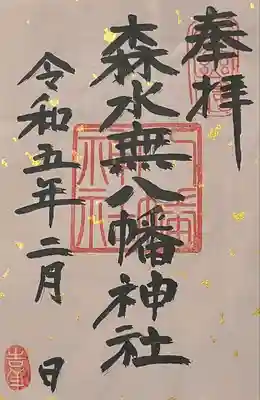 奉拝
森水無八幡神社
令和五年二月 日